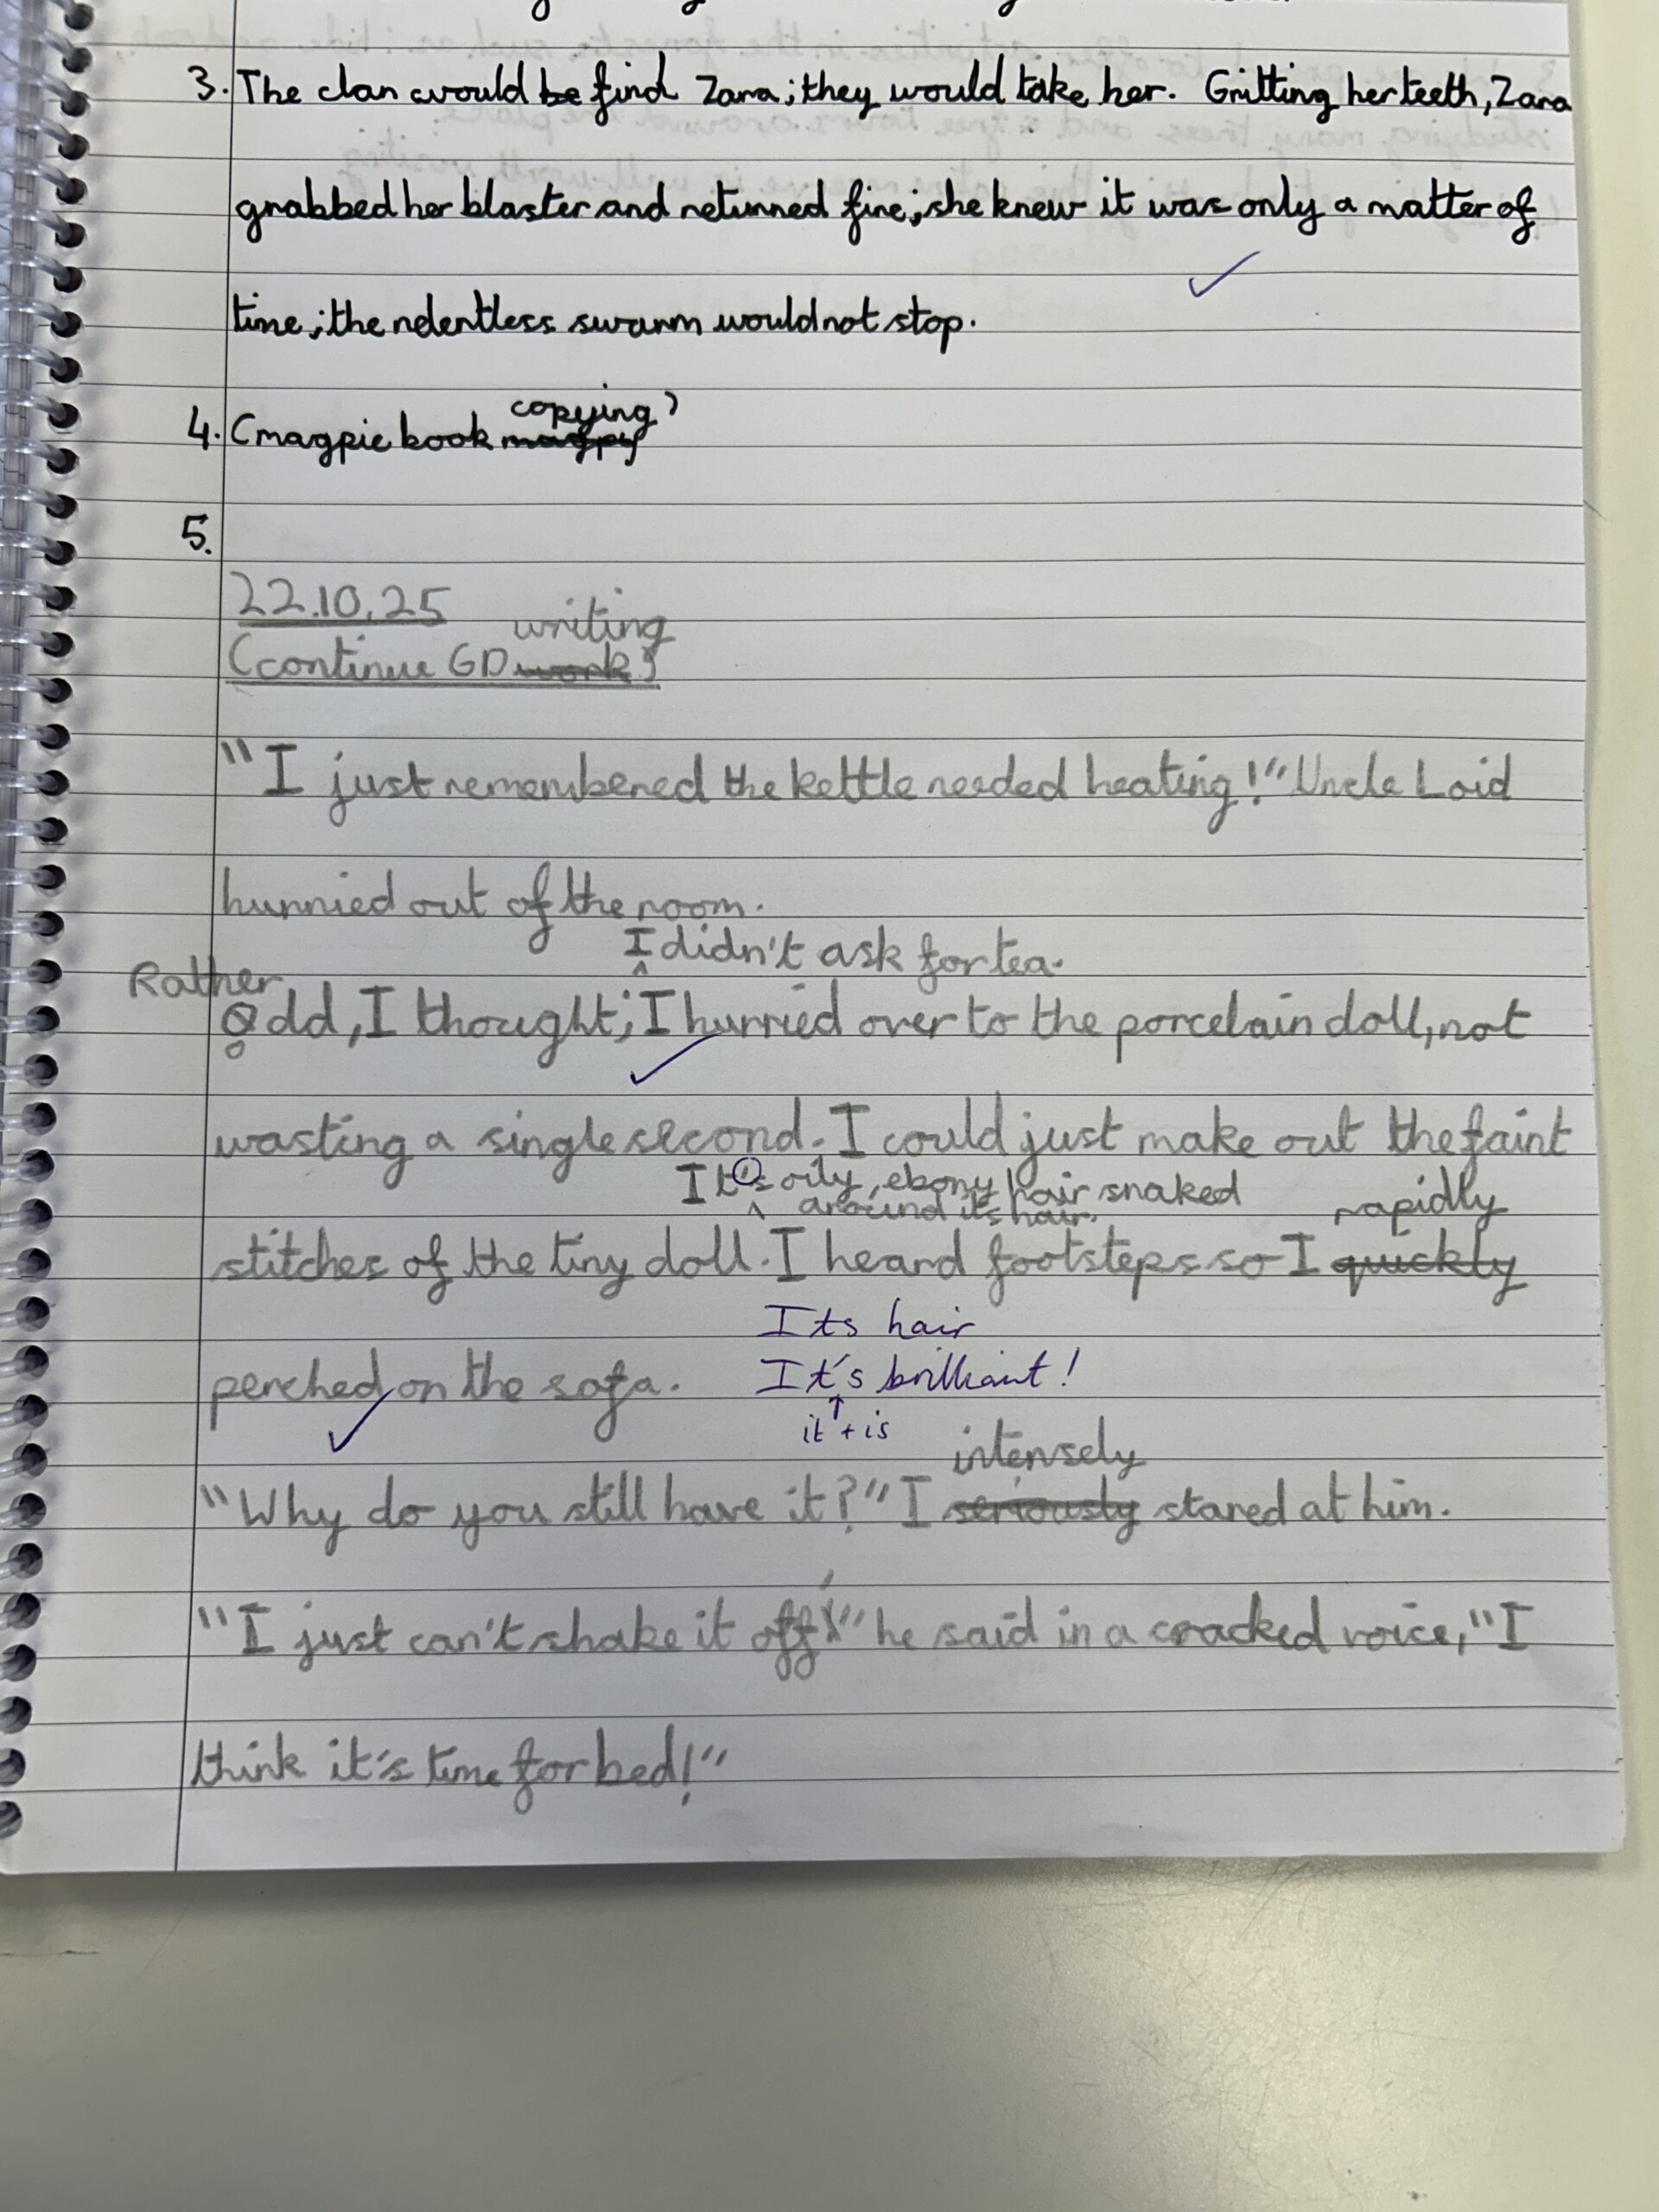 3. The clan would be find Zara; they would take her. Gritting her teeth, Zara
grabbed her blaster and returned fire; she knew it was only a matter of
time; the relentless swarm would not stop.
copying)
4. (magpie book magpy
5.
22.10.25
writing
(continue GD work)
"I just remembered the kettle needed heating!" Uncle Loid
hurried out of the room.
I didn't ask for tea.
Rather
Odd, I thought; I hurried over to the porcelain doll, not
wasting a single second. I could just make out the faint
It's oily, ebony hair snaked
around its hair.
rapidly
stitches of the tiny doll. I heard footsteps so I quickly
Its hair
perched on the sofa.
It's brilliant!
it + is
intensely
"Why do you still have it?" I seriously stared at him.
"I just can't shake it off," he said in a cracked voice, "I
think it's time for bed!"